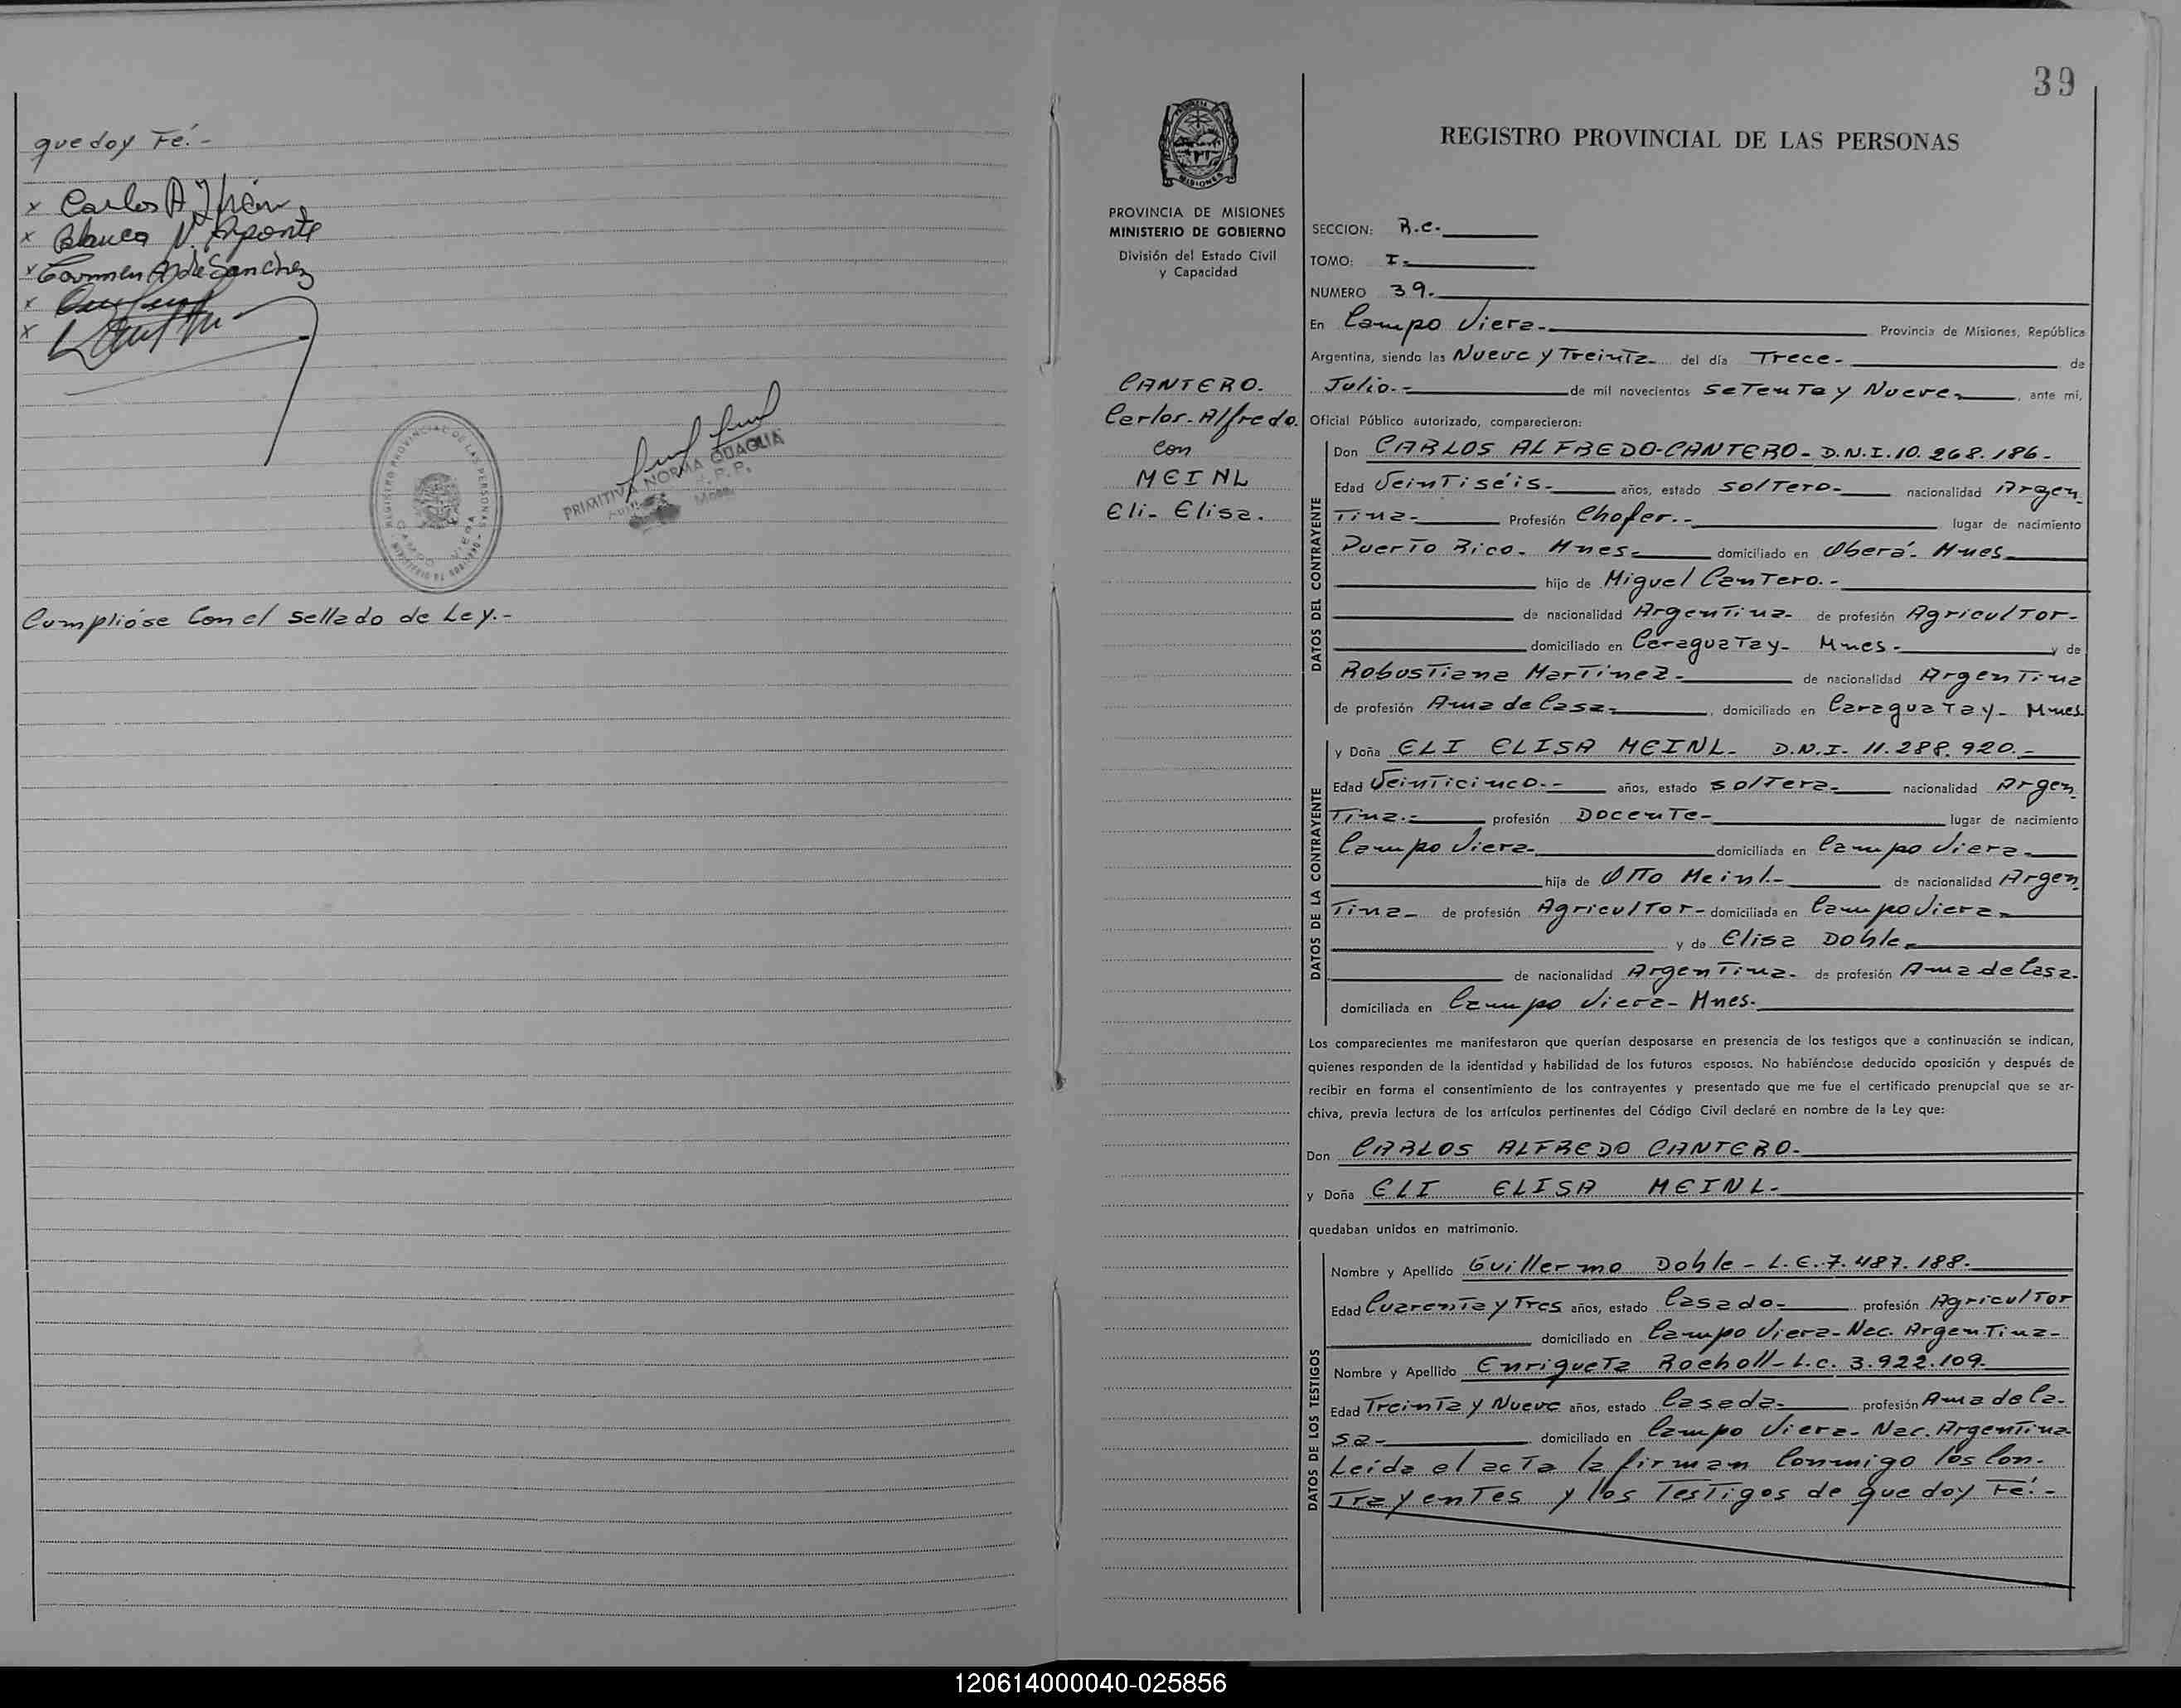 que doy Fé.-
x Carlos A
x Blanca N. Aponte
x Carmen A de Sanchez
x
x
REGISTRO PROVINCIAL DE LAS PERSONAS
CAMPO VIERA
PRIMITIVA NORMA QUAGLIA
Cumplióse Con el sellado de Ley.-
39
MISIONES
PROVINCIA DE MISIONES
MINISTERIO DE GOBIERNO
División del Estado Civil
y Capacidad
CANTERO.
Carlos-Alfredo.
Con
MEINL
Eli- Elisa.
REGISTRO PROVINCIAL DE LAS PERSONAS
SECCION: R.C.
TOMO: I-
NUMERO 39.
En Campo Viera- Provincia de Misiones, República
Argentina, siendo las Nueve y Treinta- del día Trece- de
Julio.- de mil novecientos SeTenTa y Nueve- , ante mí,
Oficial Público autorizado, comparecieron:
DATOS DEL CONTRAYENTE
Don CARLOS ALFREDO-CANTERO- D.N.I. 10.268.186-
Edad VeinTiséis- años, estado solTero- nacionalidad Argen
Tina- Profesión Chofer.- lugar de nacimiento
Puerto Rico. Mnes- domiciliado en Oberá- Mnes
hijo de Miguel CanTero.-
de nacionalidad ArgenTina- de profesión AgriculTor-
domiciliado en CaraguaTay- Mnes- y de
RobusTiana MarTinez- de nacionalidad ArgenTina
de profesión Ama de Casa- , domiciliado en CaraguaTay- Mnes
DATOS DE LA CONTRAYENTE
y Doña ELI ELISA MEINL- D.N.I- 11.288.920.-
Edad VeinTicinco.- años, estado solTera- nacionalidad Argen
Tina.- profesión DocenTe- lugar de nacimiento
Campo Viera- domiciliada en Campo Viera-
hija de OTTo Meinl- de nacionalidad Argen
Tina- de profesión AgriculTor- domiciliada en Campo Viera-
y de Elisa Dohle-
de nacionalidad ArgenTina- de profesión Ama de Casa-
domiciliada en Campo Viera- Mnes-
Los comparecientes me manifestaron que querían desposarse en presencia de los testigos que a continuación se indican,
quienes responden de la identidad y habilidad de los futuros esposos. No habiéndose deducido oposición y después de
recibir en forma el consentimiento de los contrayentes y presentado que me fue el certificado prenupcial que se ar-
chiva, previa lectura de los artículos pertinentes del Código Civil declaré en nombre de la Ley que:
Don CARLOS ALFREDO CANTERO-
y Doña ELI ELISA MEINL-
quedaban unidos en matrimonio.
DATOS DE LOS TESTIGOS
Nombre y Apellido Guillermo Dohle - L.E. 7.487.188-
Edad CuarenTa y Tres años, estado Casado- profesión AgriculTor
domiciliado en Campo Viera-Nac. ArgenTina-
Nombre y Apellido EnriqueTa Rocholl-L.C. 3.922.109-
Edad TreinTa y Nueve años, estado Casada- profesión Ama de Ca-
sa- domiciliado en Campo Viera- Nac. ArgenTina
Leída el acTa la firman Conmigo los Con-
TrayenTes y los TesTigos de que doy Fé.-
120614000040-025856